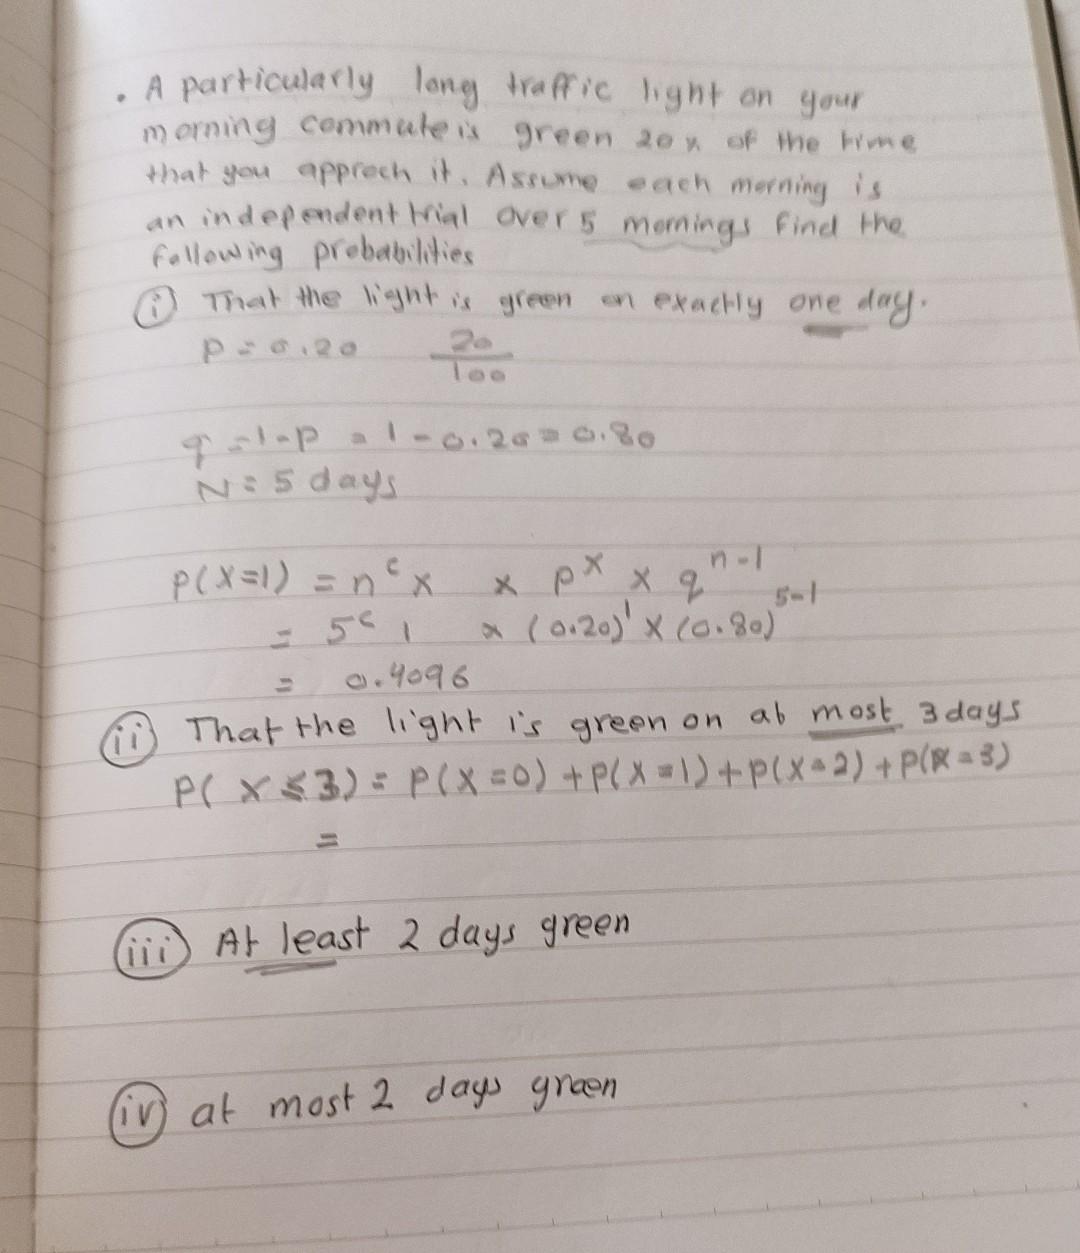 . A particularly long traffic light on your
morning commute is green 20% of the time
that you approch it. Assume each morning is
an independent trial over 5 mornings find the
following probabilities
(i) That the light is green on exactly one day.
P = 0.20 20/100
q = 1-p = 1 - 0.20 = 0.80
N = 5 days
P(X=1) = n^c x × p^x × q^n-1
= 5^c 1 × (0.20)^1 × (0.80)^5-1
= 0.4096
(ii) That the light is green on at most 3 days
P( X ≤ 3) = P(X=0) + P(X=1) + P(X=2) + P(X=3)
=
(iii) At least 2 days green
(iv) at most 2 days green